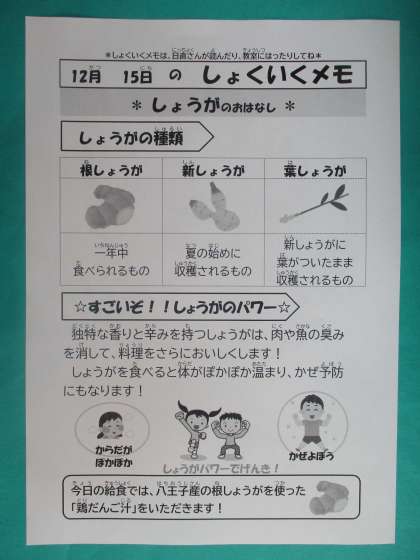 ＊しょくいくメモは、日直さんが読んだり、教室にはったりしてね＊
12月　15日　の　しょくいくメモ
＊ しょうがのおはなし ＊
しょうがの種類
根しょうが　新しょうが　葉しょうが
一年中
食べられるもの
夏の始めに
収穫されるもの
新しょうがに
葉がついたまま
収穫されるもの
☆すごいぞ！！しょうがのパワー☆
独特な香りと辛みを持つしょうがは、肉や魚の臭み
を消して、料理をさらにおいしくします！
しょうがを食べると体がぽかぽか温まり、かぜ予防
にもなります！
からだが
ぽかぽか
しょうがパワーでげんき！
かぜよぼう
今日の給食では、八王子産の根しょうがを使った
「鶏だんご汁」をいただきます！